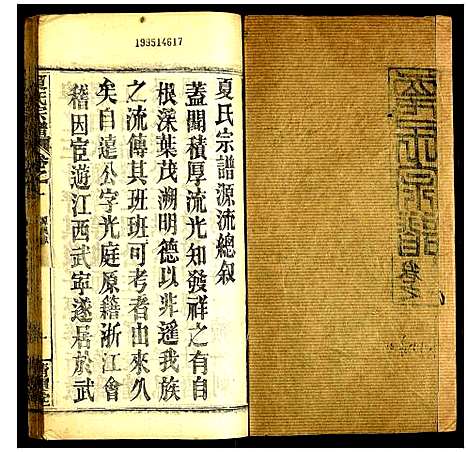 199514617
夏氏宗譜源流總叙
蓋聞積厚流光知發祥之有自
根深葉茂溯明德以非遥我族
之流傳其班班可考者由來久
矣自遠公字光庭原籍浙江會
稽因宦遊江西武寧遂居於武
夏氏宗譜